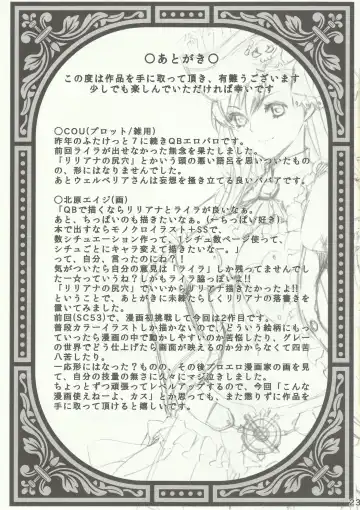 ○あとがき○
この度は作品を手に取って頂き、有難うございます
少しでも楽しんでいただければ幸いです
○COU(プロット/雑用)
昨年のふたけっと7に続きQBエロパロです。
前回ライラが出せなかった無念を果たしました。
「リリアナの尻穴」とかいう頭の悪い語呂を思いついたもの
の、形にはなりませんでした。
あとウェルベリアさんは妄想を掻き立てる良いババアです。
○北原エイジ(画)
「QBで描くならリリアナとライラが良いなぁ。
あと、ちっぱいのも描きたいなぁ。(←ちっぱい好き)
本で出すならモノクロイラスト+SSで、
数シチュエーション作って、1シチュ数ページ使って、
シチュごとにキャラ変えて描きたいなー。」
って、自分、言ったのにね?
気がついたら自分の意見は「ライラ」しか残ってませんでし
た―☆っていうね?しかもライラ脇っぽいよ!!
「リリアナの尻穴」でいいからリリアナ描きたかったよ!!
ということで、あとがきに未練たらしくリリアナの落書きを
置いて行きます。
前回(SC53)で、漫画初挑戦して今回は2作目です。
普段カラーイラストしか描かないので、どういう絵柄にもっ
ていったら漫画の中で動かしやすいのか苦悩したり、グレー
の世界でどう仕上げたら画面が映えるのか分からなくて四苦
八苦したり。
一応形にはなった?ものの、その後プロエロ漫画家の画を見
て、自分の技量の無さに久々にマジ泣きしました。
ちょっとずつ頑張ってレベルアップするので、今回「こんな
漫画使えねーよ、カス」とお思いでも、また懲りずに作品を
手に取って頂けると嬉しいです。
23